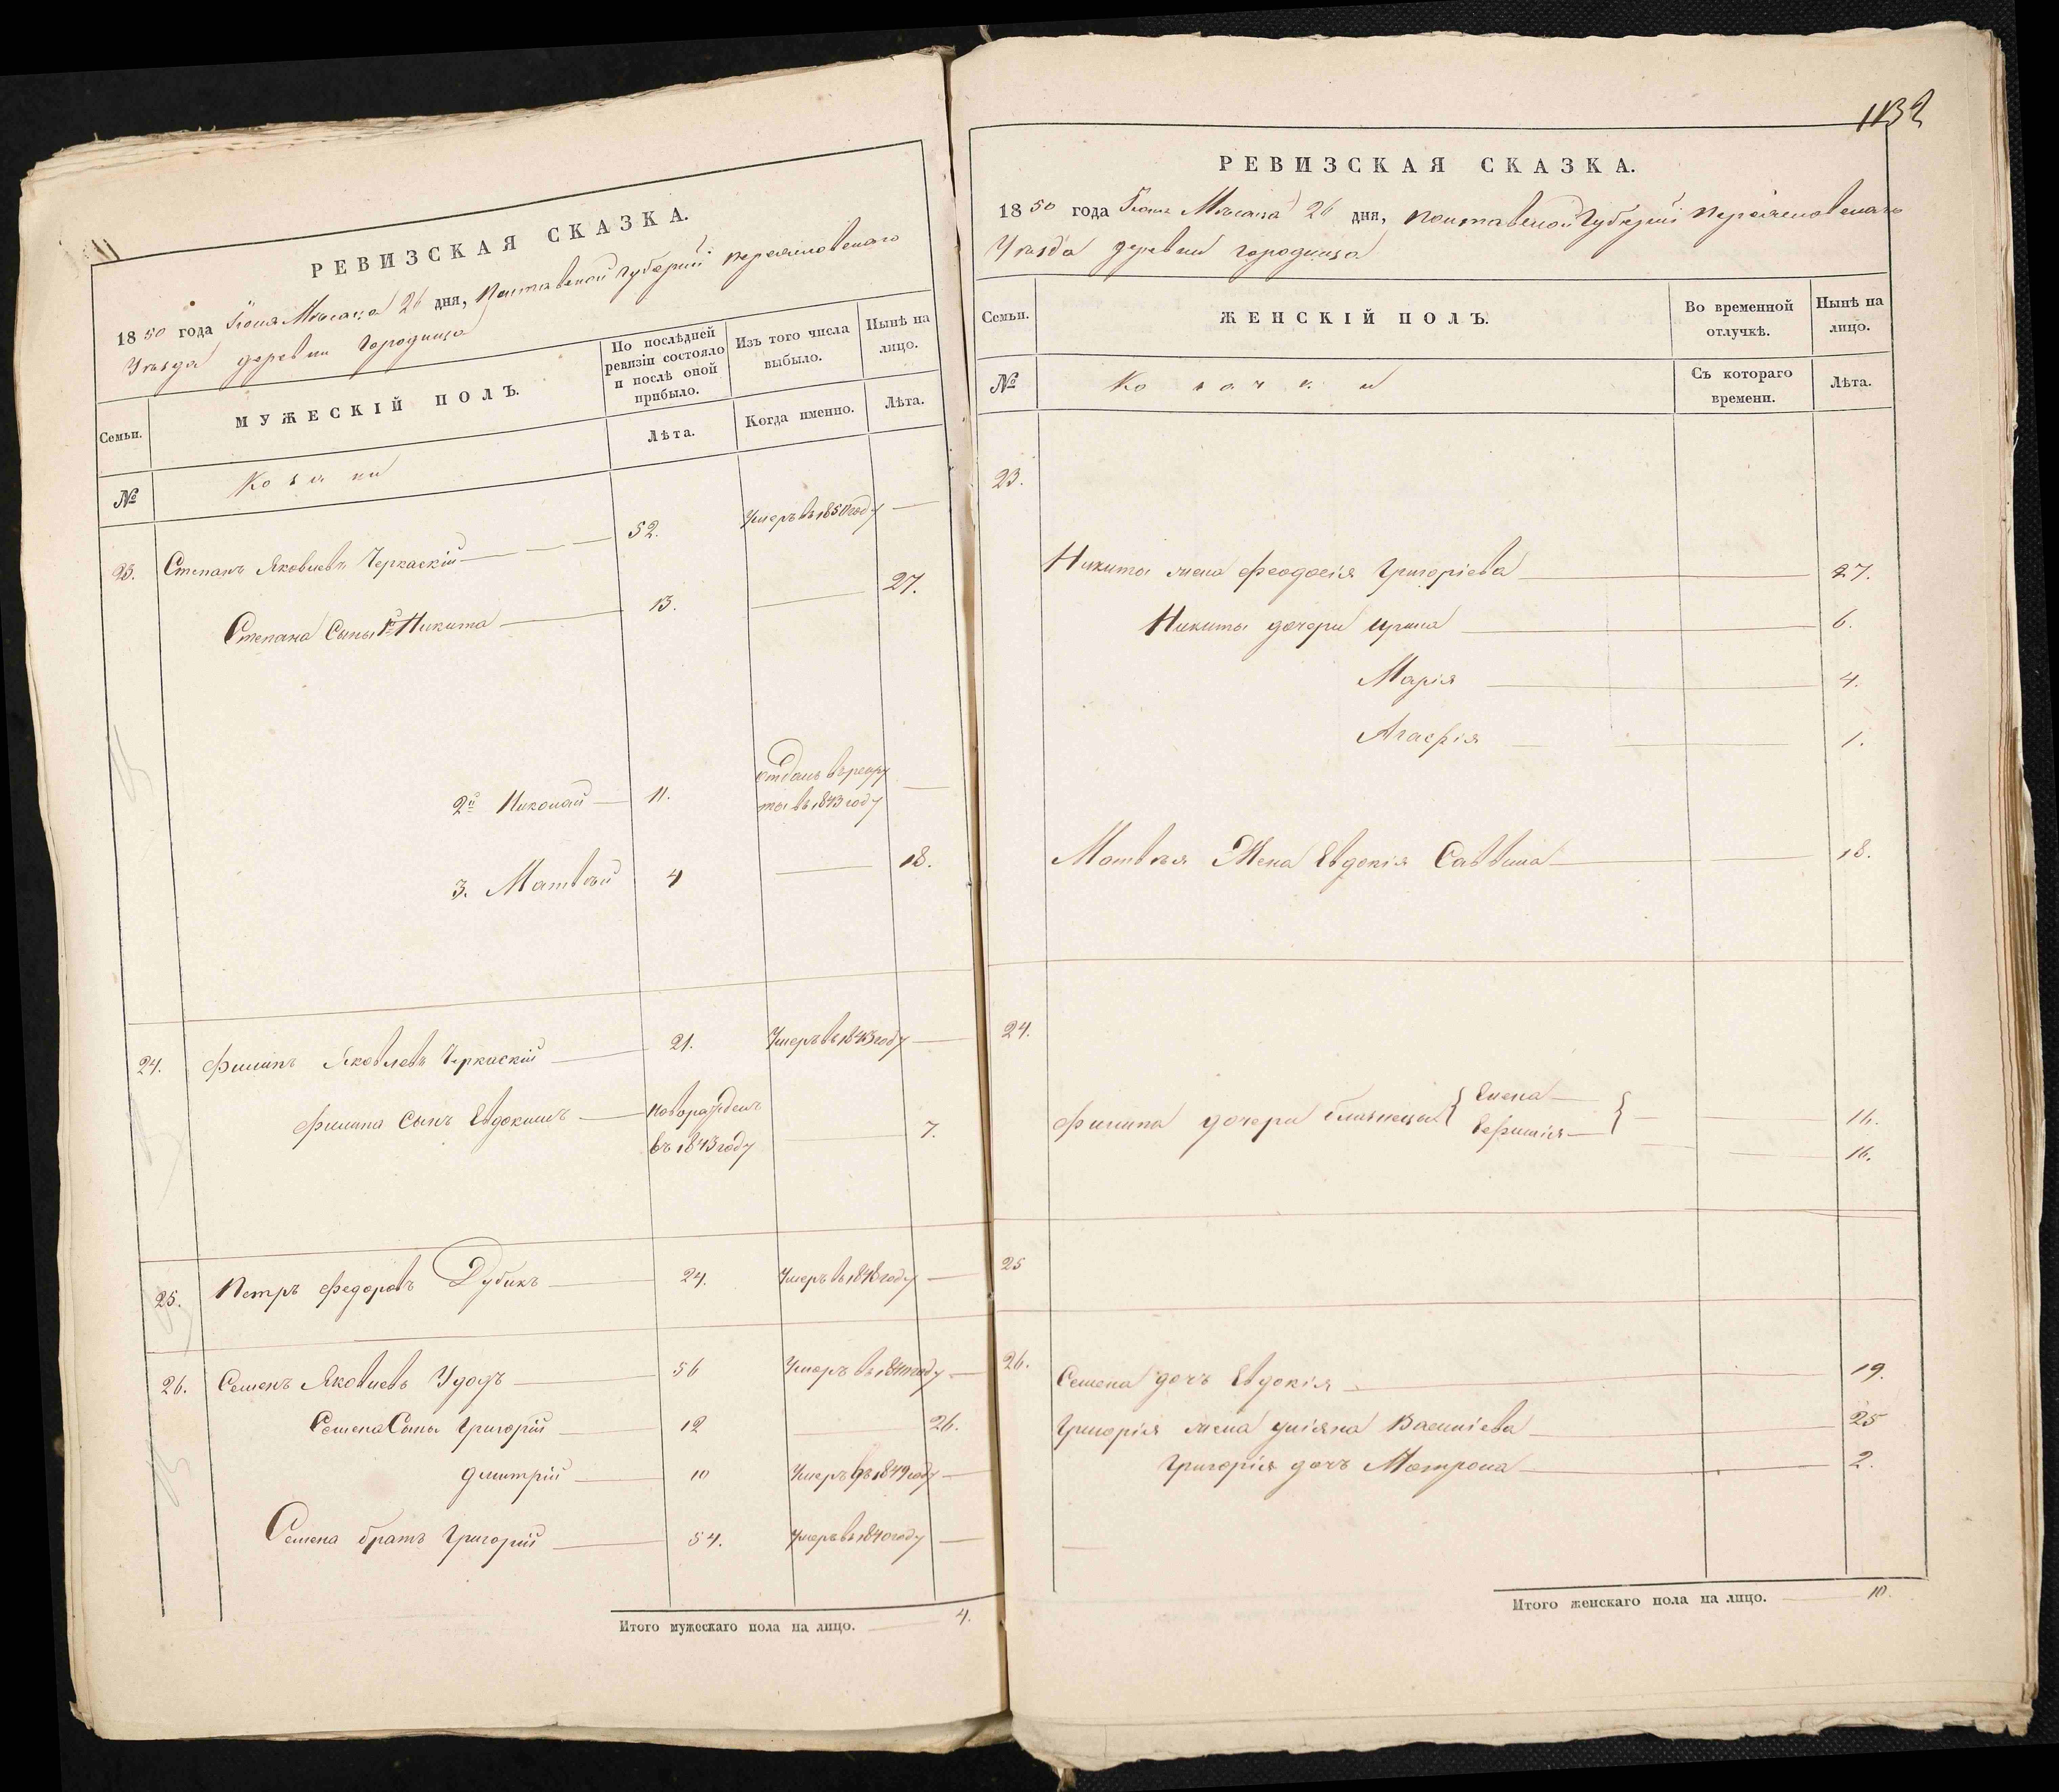 РЕВИЗСКАЯ СКАЗКА.
1850 года Іюня Мѣсяца 26 дня, Полтавской Губерніи Переяславского
Уѣзда деревни Городища
Семьи.
МУЖЕСКІЙ ПОЛЪ.
По послѣдней ревизіи состояло и послѣ оной прибыло.
Изъ того числа выбыло.
Нынѣ на лицо.
Лѣта.
Когда именно.
Лѣта.
№
Козаки
23. Степанъ Яковлевъ Черкаскій 52. Умеръ въ 1850 году
Степана Сыны 1й Никита 13. 27.
2й Николай 11. отданъ въ рекру
ты въ 1843 году
3. Матвѣй 4 18.
24. Филипъ Яковлевъ Черкаскій 21. Умеръ въ 1843 году
Филипа Сынъ Евдокимъ новорожденъ
въ 1843 году 7.
25. Петръ Федоровъ Дубикъ 24. Умеръ въ 1848 году
26. Семенъ Яковлевъ Удодъ 56 Умеръ въ 1840 году
Семена Сыны Григорій 12 26.
Дмитрій 10 Умеръ въ 1849 году
Семена братъ Григорій 54. Умеръ въ 1840 году
Итого мужескаго пола на лицо. 4.
1132
РЕВИЗСКАЯ СКАЗКА.
1850 года Іюня Мѣсяца 26 дня, Полтавской Губерніи Переяславского
Уѣзда деревни Городища
Семьи.
ЖЕНСКІЙ ПОЛЪ.
Во временной отлучкѣ.
Нынѣ на лицо.
№
Козачки
Съ котораго времени.
Лѣта.
23.
Никиты жена Феодосія Григоріева 27.
Никиты дочери Ирина 6.
Марія 4.
Агафія 1.
Матвѣя Жена Евдокія Саввина 18.
24.
Филипа дочери близнецы { Елена 16.
Ефимія } 16.
25
26. Семена дочь Евдокія 19.
Григорія жена Уліяна Василіева 25
Григорія дочь Мотрона 2.
Итого женскаго пола на лицо. 10.